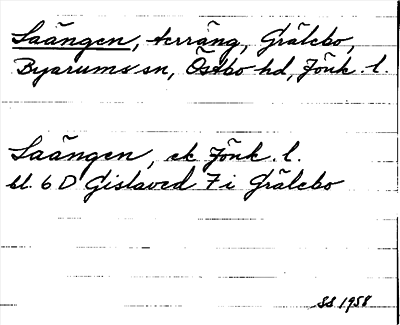 Saängen, terräng, Grälebo,
Byarums sn, Östbo hd, Jönk. l.
Saängen, ek Jönk. l.
bl. 6 D Gislaved 7 i Grälebo
SS 1958